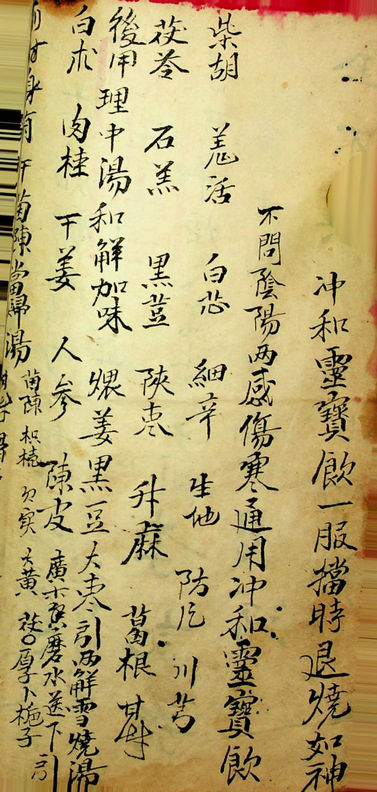 冲和靈寶飲一服擋時退燒如神
不問陰陽两感傷寒通用冲和靈寶飲
柴胡 羌活 白芷 細辛 生地 防风 川芎
茯苓 石羔 黑荳 陝枣 升麻 葛根 甘草
後用理中湯和解加味 煨姜黑豆大枣引两解雪燒湯
白朮 肉桂 干姜 人参 陳皮 廣木香磨水送下
身有 茵陳 湯 茵陳 枳桔 枳实 大黄 厚卜 梔子 引